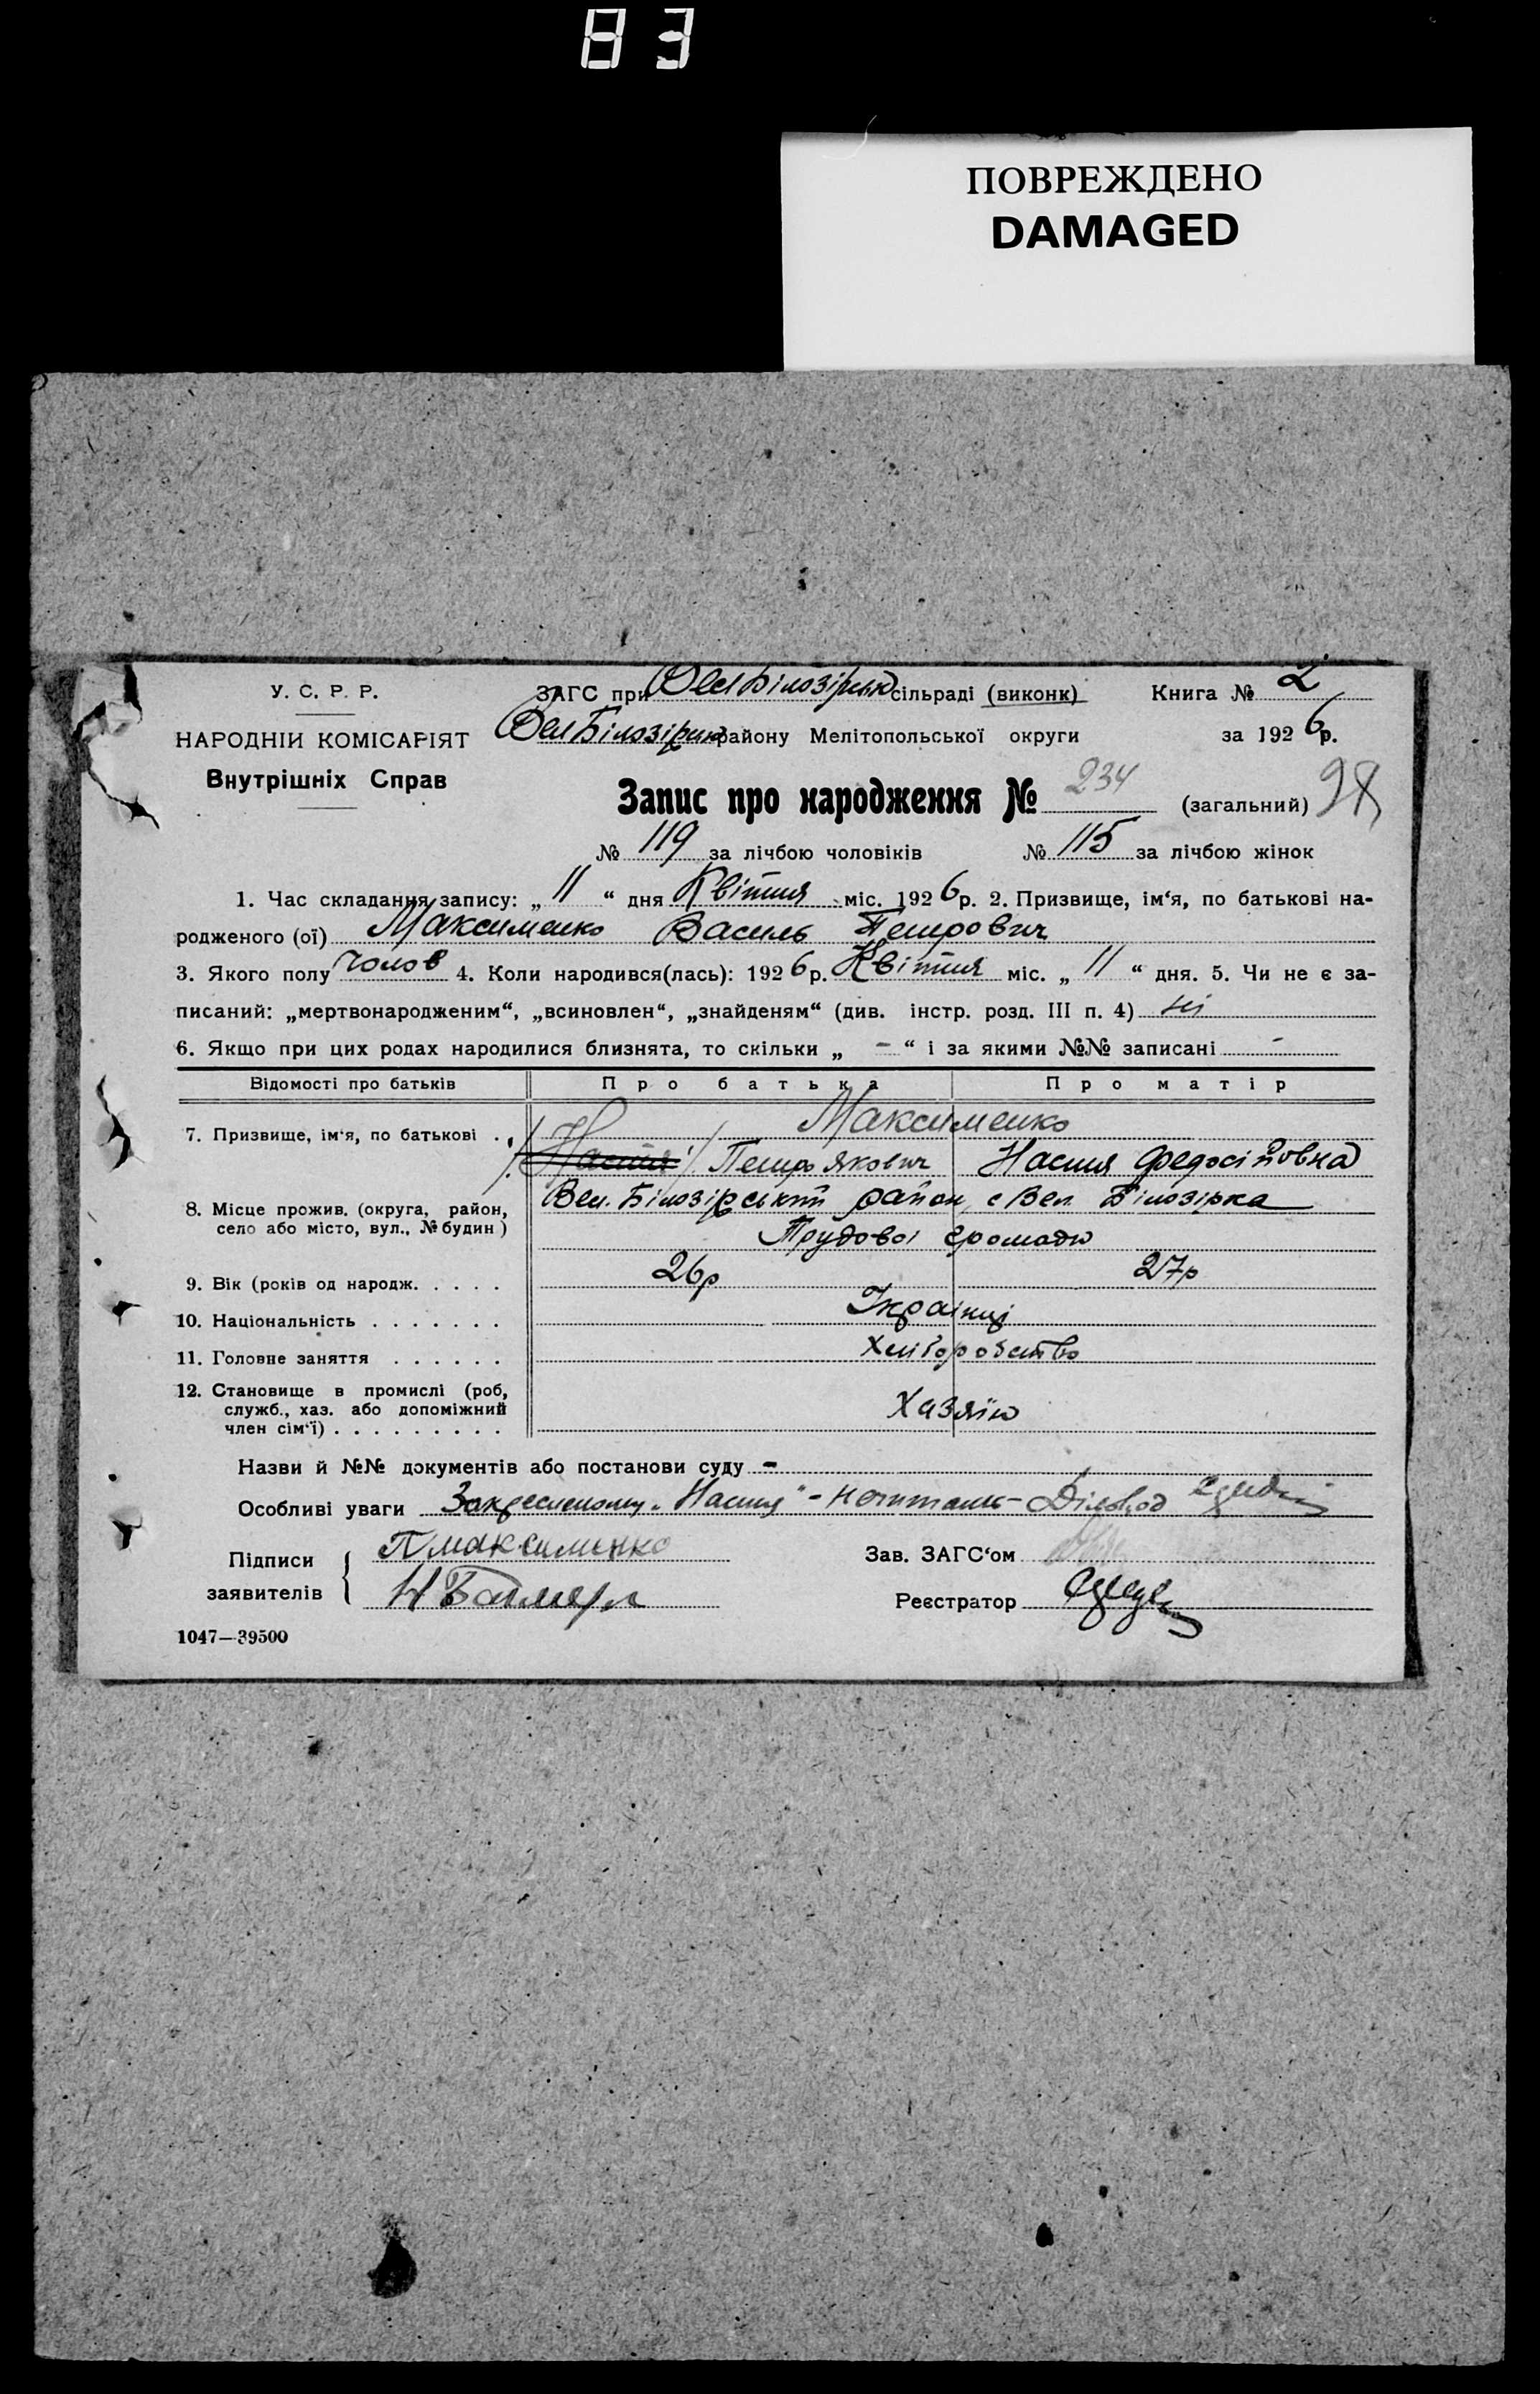 83
ПОВРЕЖДЕНО
DAMAGED
У. С. Р. Р.
ЗАГС при Вел Білозірськ сільраді (виконк) Книга № 2
НАРОДНІЙ КОМІСАРІЯТ Вел Білозірськ району Мелітопольської округи за 1926 р.
Внутрішніх Справ
Запис про народження № 234 (загальний) 98
№ 119 за лічбою чоловіків № 115 за лічбою жінок
1. Час складання запису: „ 11 “ дня Квітня міс. 1926 р. 2. Призвище, ім‘я, по батькові на-
родженого (ої) Максименко Василь Петрович
3. Якого полу чолов 4. Коли народився(лась): 1926 р. Квітня міс. „ 11 “ дня. 5. Чи не є за-
писаний: „мертвонародженим“, „всиновлен“, „знайденям“ (див. інстр. розд. III п. 4) ні
6. Якщо при цих родах народилися близнята, то скільки „ - “ і за якими №№ записані -
Відомості про батьків Про батька Про матір
7. Призвище, ім‘я, по батькові . . Максименко
Настя Петро Якович Настя Федосіївна
8. Місце прожив. (округа, район, село або місто, вул., № будин) Вел. Білозірський район, с Вел. Білозірка
Трудової громади
9. Вік (років од народж. . . . . 26р 27р
10. Національність . . . . . . . Українці
11. Головне заняття . . . . . . Хліборобство
12. Становище в промислі (роб,
служб., хаз. або допоміжний
член сім‘ї) . . . . . . . . . Хазяїн
Назви й №№ документів або постанови суду -
Особливі уваги Закресленому „Настя" - Діловод
Підписи заявителів { П Максименко
Зав. ЗАГС‘ом
Реєстратор
1047—39500